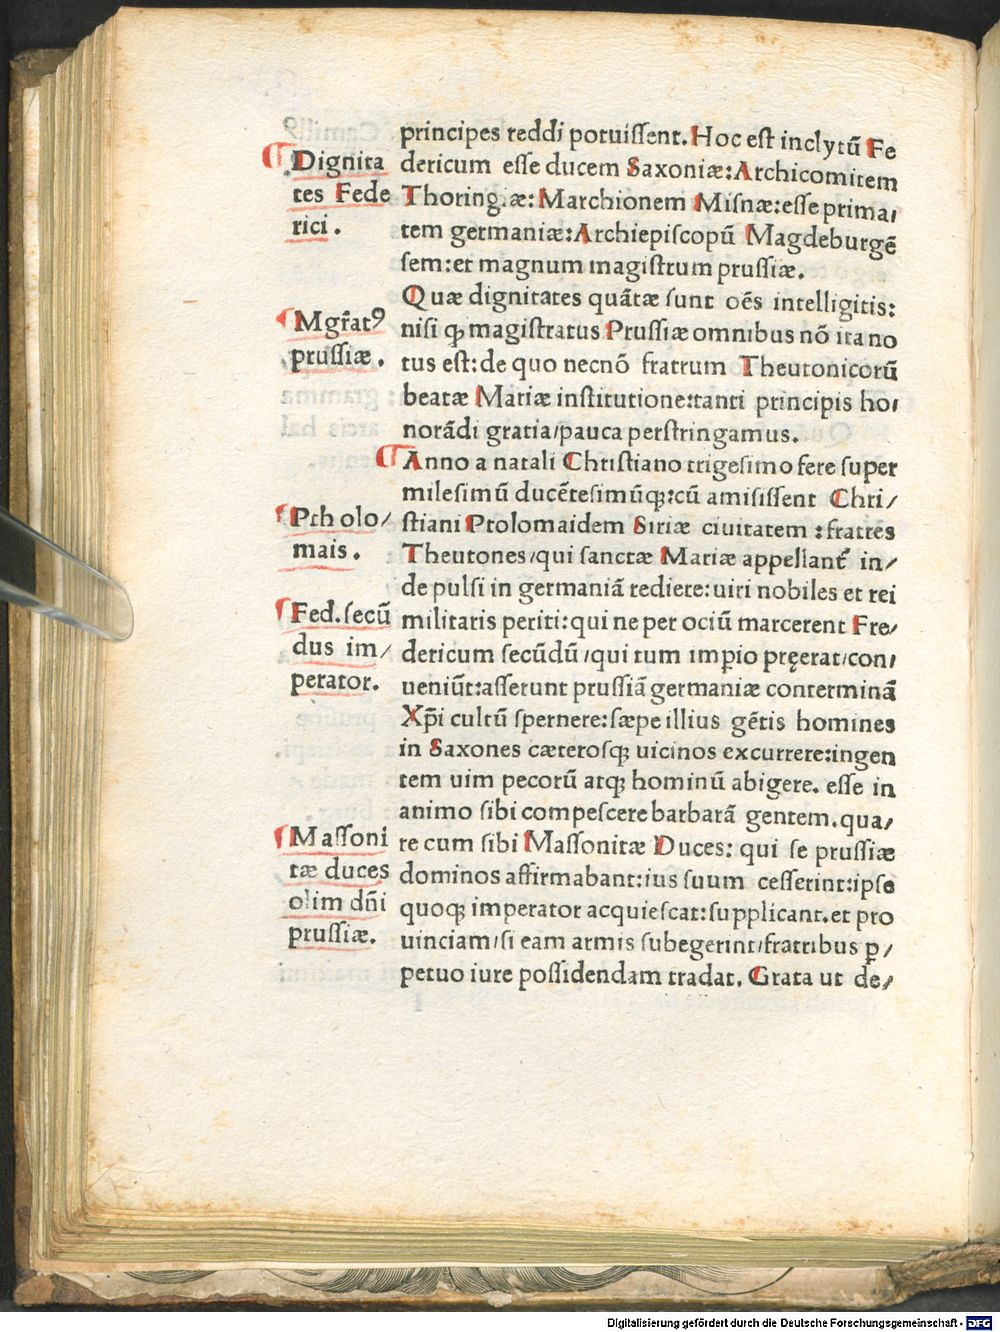 principes reddi potuiſſent. Hoc eſt inclytū Fe
dericum eſſe ducem Saxoniæ: Archicomitem
Thoring.æ: Marchionem Miſnæ: eſſe prima/
tem germaniæ: Archiepiſcopū Magdeburgē
ſem: et magnum magiſtrum pruſſiæ.
Quæ dignitates quātæ ſunt oēs intelligitis:
niſi ꝙ magiſtratus Pruſſiæ omnibus nō ita no
tus eſt: de quo necnō fratrum Theutonicorū
beatæ Mariæ inſtitutione: tanti principis ho/
norādi gratia/ pauca perſtringamus.
¶ Anno a natali Chriſtiano trigeſimo fere ſuper
mileſimū ducēteſimūꝗ: cū amiſiſſent Chri/
ſtiani Ptolomaidem Siriæ ciuitatem: fratres
Theutones/ qui ſanctæ Mariæ appellant̃ in/
de pulſi in germaniā rediere: uiri nobiles et rei
militaris periti: qui ne per ociū marcerent Fre/
dericum ſecūdū/ qui tum impio pręerat/ con/
ueniūt: aſſerunt pruſſiā germaniæ conterminā
Xp̄i cultū ſpernere: ſæpe illius gētis homines
in Saxones cæteroſꝗ uicinos excurrere: ingen
tem uim pecorū atꝗ hominū abigere. eſſe in
animo ſibi compeſcere barbarā gentem. qua/
re cum ſibi Maſſonitæ Duces: qui ſe pruſſiæ
dominos affirmabant: ius ſuum ceſſerint: ipſe
quoꝗ imperator acquieſcat: ſupplicant. et pro
uinciam/ ſi eam armis ſubegerint/ fratribus ꝑ/
petuo iure poſſidendam tradat. Grata ut de/
¶ Dignita
tes Fede
rici.
¶ Mgr̃atꝰ
pruſſiæ.
¶ Ptholo/
mais.
¶ Fed. ſecū
dus im/
perator.
¶ Maſſoni
tæ duces
olim dn̄i
pruſſiæ.
Digitalisierung gefördert durch die Deutsche Forschungsgemeinschaft - DFG